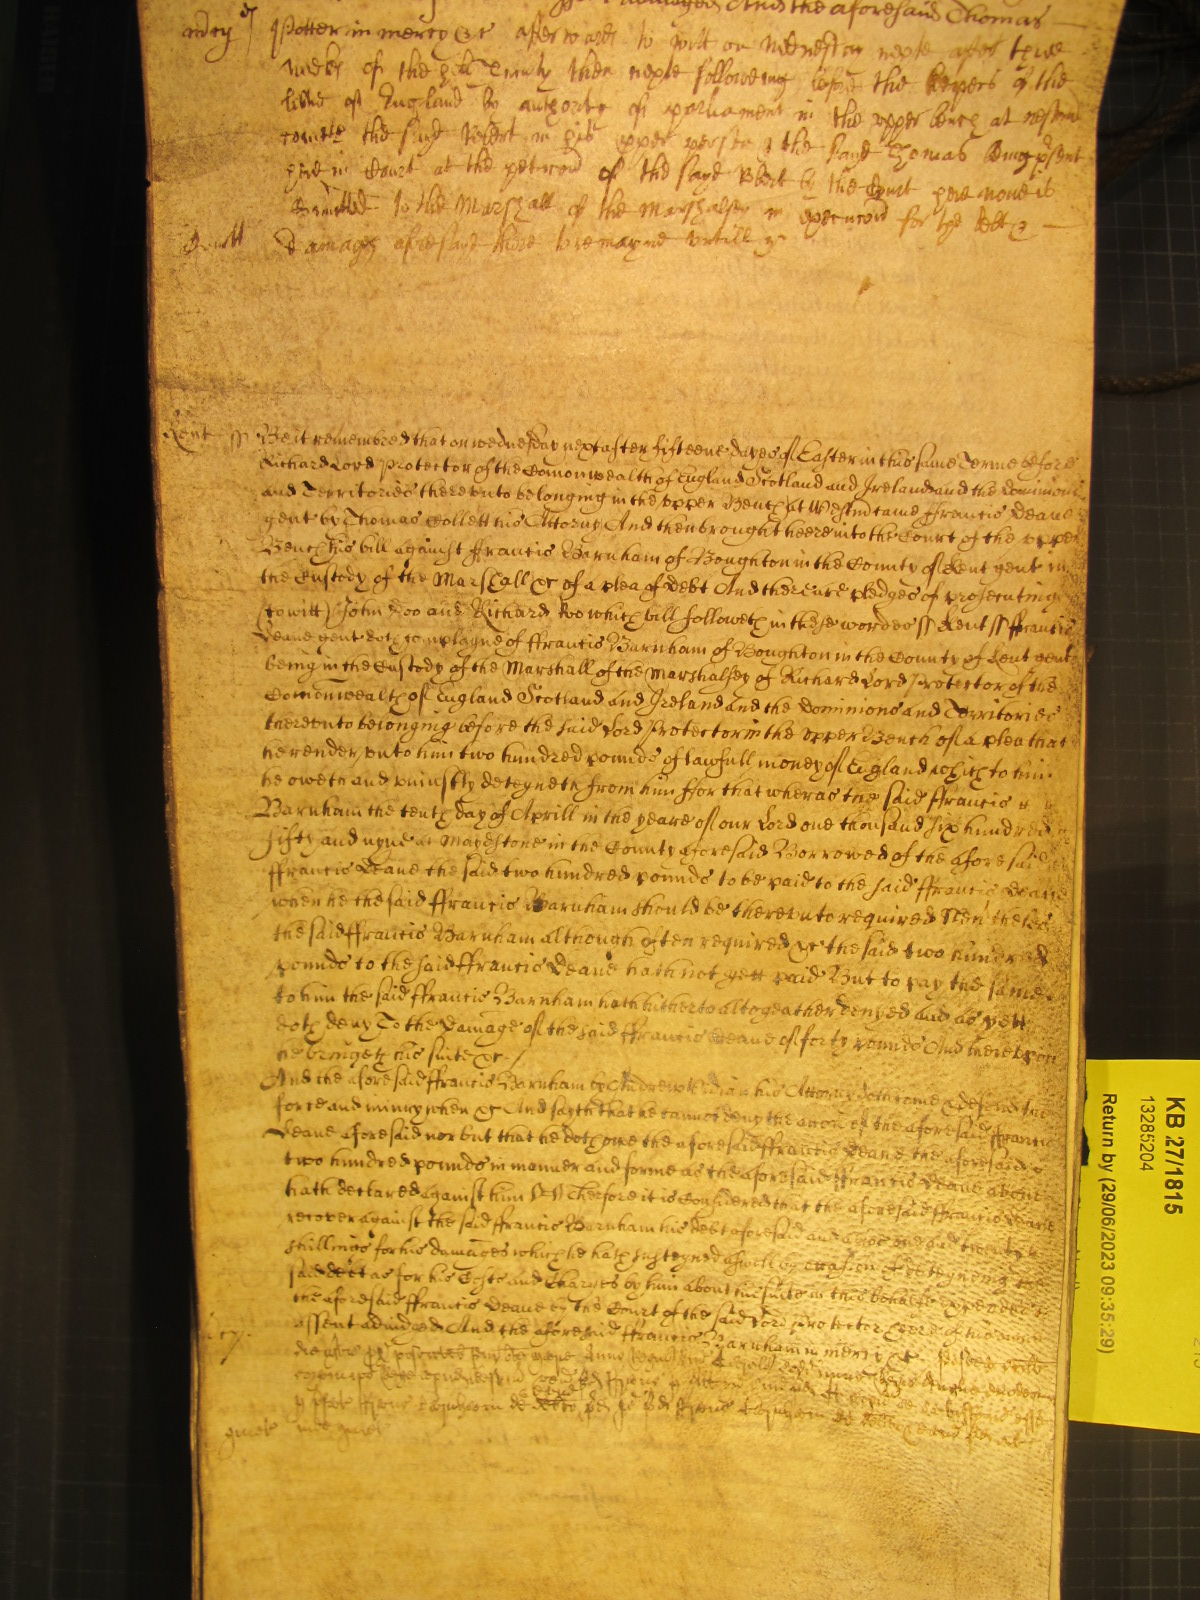 And the aforesaid Thomas
mercy Potter in mercy &c afterwards to witt on Wednesday next after three
weekes of the holy Trinity then next following before the keepers of the
libtie of England by authority of parliament in the upper bench at Westm
cometh the said Robert in his pper person & the said Thomas being psent
here in Court at the peticion of the said Robt by the Court here now is
Comitted to the Marshall of the Marshalsey in execucion for the debt &
Comitt damages aforesaid there to remayne untill &c
Kent ss Be it remembred that on wednesday next after fifteene dayes of Easter in this same Terme before
Richard Lord Protector of the Comonwealth of England Scotland and Ireland and the dominions
and Territories thereunto belonging in the upper Bench at Westm came ffrancis Deane
gent by Thomas Collett his Attorny And then brought heere into the Court of the upper
Bench his bill against ffrancis Barnham of Boughton in the County of Kent gent in
the Custody of the Marshall &c of a plea of debt And there are pledges of prosecuting
(to witt) John Doo and Richard Roo which bill followeth in these wordes ss Kent ss ffrancis
Deane gent doth complayne of ffrancis Barnham of Boughton in the County of Kent gent
being in the Custody of the Marshall of the Marshalsey of Richard Lord Protector of the
Comonwealth of England Scotland and Ireland and the dominions and Territories
thereunto belonging before the said Lord Protector in the upper Bench of a plea that
he render unto him two hundred pounds of lawfull money of England which to him
he oweth and uniustly deteyneth from him ffor that wheras the said ffrancis
Barnham the tenth day of Aprill in the yeare of our Lord one thousand six hundred
fifty and nyne at Maydstone in the County aforesaid Borrowed of the aforesaid
ffrancis Deane the said two hundred pounds to be paid to the said ffrancis Deane
when he the said ffrancis Barnham should be thereunto required Nevtheles
the said ffrancis Barnham although often required &c the said two hundred
pounds to the said ffrancis Deane hath not yett paid But to pay the same
to him the said ffrancis Barnham hath hitherto altogeather denyed and as yett
doth deny To the damage of the said ffrancis Deane of forty pounds And thereupon
he bringeth his suite &c
And the aforesaid ffrancis Barnham by Andrew his Attorny doth come & defend the
force and iniury when &c And sayth that he cannot deny the accon of the aforesaid ffrancis
Deane aforesaid nor but that he doth owe the aforesaid ffrancis Deane the aforesaid
two hundred pounds in manner and forme as the aforesaid ffrancis Deane above
hath declared against him Therfore it is Considered that the aforesaid ffrancis Deane
recover against the said ffrancis Barnham his debt aforesaid and also one and twenty
shillings for his damages which he hath susteyned aswell by occasion of deteyneing the
said debt as for his Costs and Charges by him about his suite in this behalfe expended to
the aforesaid ffrancis Deane by the Court of the said Lord Protector here of his owne
assent adiudged And the aforesaid ffrancis Barnham in mercy &c
KB 27/1815
13285204
Return by (29/06/2023 09:35:29)